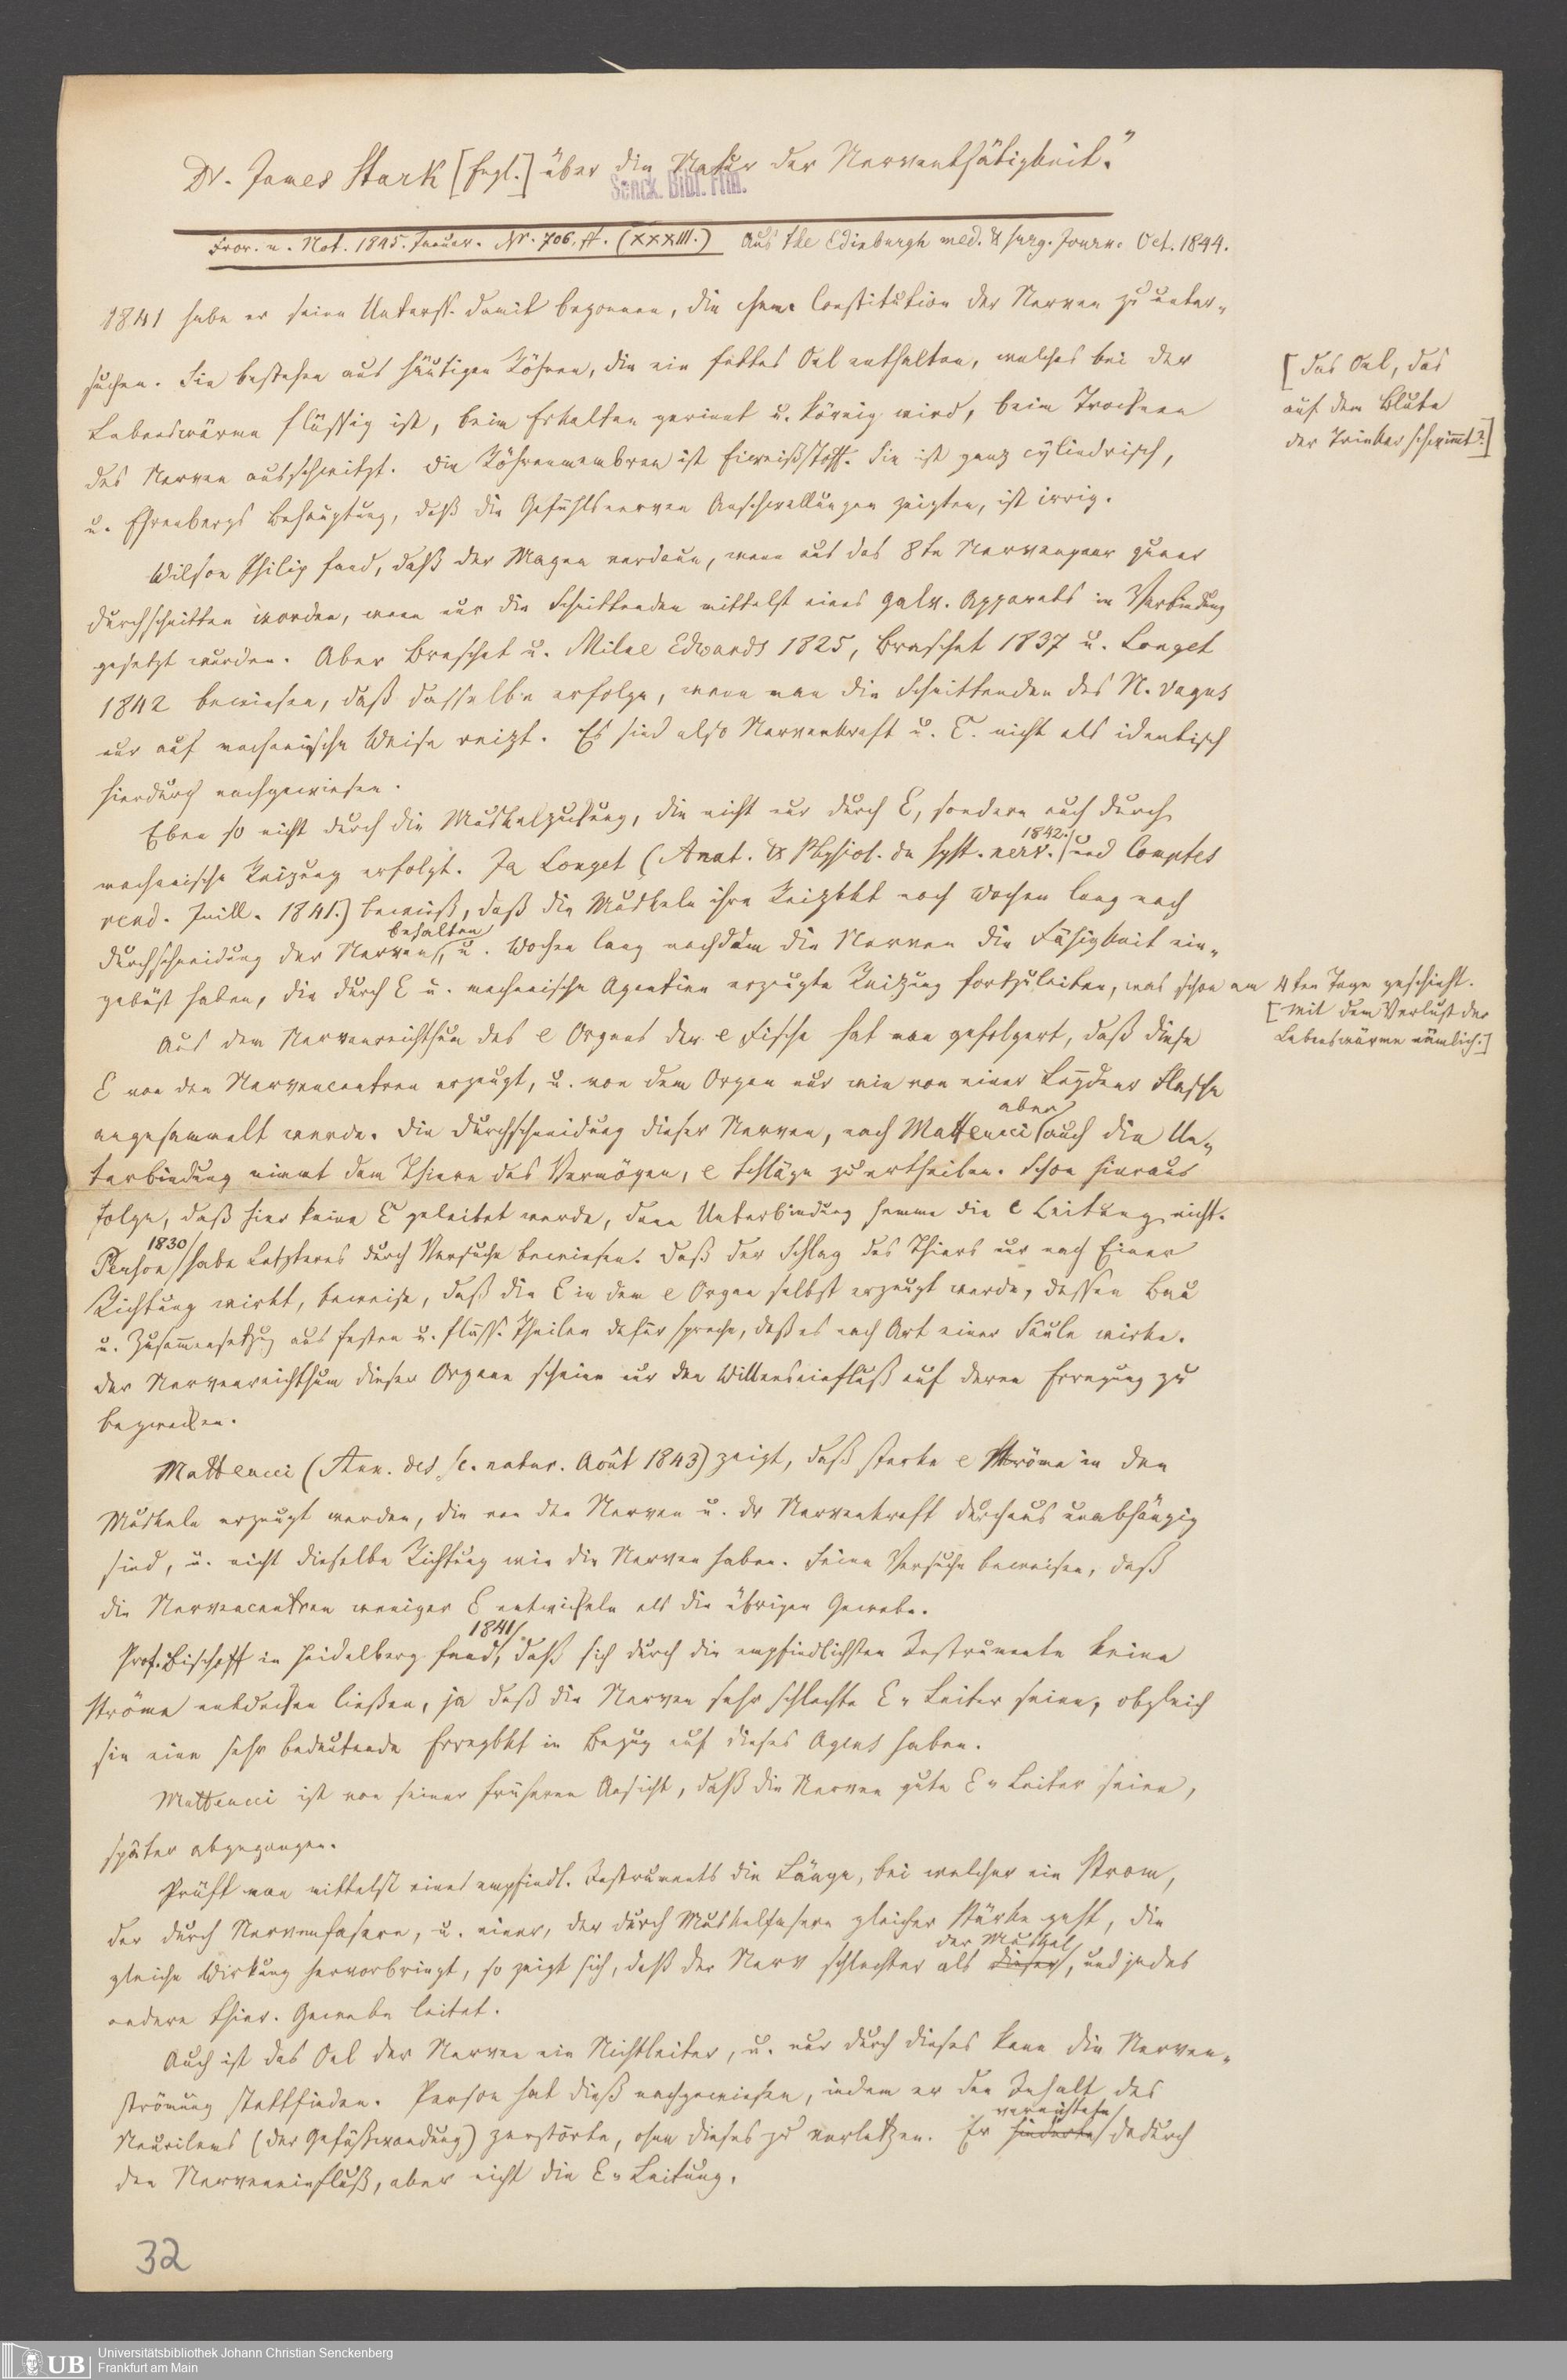 Dr. James Stark [Engl.] „über die Natur der Nerventhätigkeit."
Senck. Bibl. Ffm.
Fror. n. Not. 1845. Januar. Nr. 706. ff. (XXXIII.) Aus the Edinburgh med. & surg. Journ. Oct. 1844.
1841 habe er seine Unterss. damit begonnen, die chem. Constitution der Nerven zu unter-
suchen. Sie bestehen aus häutigen Röhren, die ein fettes Oel enthalten, welches bei der
Lebenswärme flüssig ist, beim Erkalten gerinnt u. körnig wird, beim Trocknen
des Nerven ausschwitzt. Die Röhrenmembran ist Eiweißstoff. Sie ist ganz cylindrisch,
u. Ehrenbergs Behauptung, daß die Gefühlsnerven Anschwellungen zeigten, ist irrig.
[Das Oel, das
auf dem Blute
der Trinker schwimmt?]
Wilson Philip fand, daß der Magen verdaue, wenn auch das 8te Nervenpaar quer
durchschnitten worden, wenn nur die Schnittenden mittelst eines galv. Apparats in Verbindung
gesetzt wurden. Aber Breschet u. Milne Edwards 1825, Breschet 1837 u. Longet
1842 bewiesen, daß dasselbe erfolge, wenn man die Schnittenden des N. vagus
nur auf mechanische Weise reizt. Es sind also Nervenkraft u. E. nicht als identisch
hierdurch nachgewiesen.
Eben so nicht durch die Muskelzuckung, die nicht nur durch E, sondern auch durch
mechanische Reizung erfolgt. Ja Longet (Anat. & Physiol. du syst. nerv. 1842. und Comptes
rend. Juill. 1841.) bewies, daß die Muskeln ihre Reizbkt noch Wochen lang nach
Durchschneidung der Nerven behalten, u. Wochen lang nachdem die Nerven die Fähigkeit ein-
gebüßt haben, die durch E u. mechanische Agentien erzeugte Reizung fortzuleiten, was schon am 4ten Tage geschieht.
[Mit dem Verlust der
Lebenswärme nämlich.]
Aus dem Nervenreichthum des e Organs der e Fische hat man gefolgert, daß diese
E von den Nervencentren erzeugt, u. von dem Organ nur wie von einer Leydener Flasche
angesammelt werde. Die Durchschneidung dieser Nerven, nach Matteucci aber auch die Un-
terbindung nimmt dem Thiere das Vermögen, e Schläge zu ertheilen. Schon hieraus
folge, daß hier keine E geleitet werde, denn Unterbindung hemme die e Leitung nicht.
Person 1830 habe Letzteres durch Versuche bewiesen. Daß der Schlag des Thiers nur nach Einer
Richtung wirkt, beweise, daß die E in dem e Organ selbst erzeugt werde, dessen Bau
u. Zusammensetzg aus festen u. flüss. Theilen dafür spreche, daß es nach Art einer Säule wirke.
Der Nervenreichthum dieser Organe scheine nur den Willenseinfluß auf deren Erregung zu
bezwecken.
Matteucci (Ann. des sc. natur. Août 1843) zeigt, daß starke e Ströme in den
Muskeln erzeugt werden, die von den Nerven u. der Nervenkraft durchaus unabhängig
sind, u. nicht dieselbe Richtung wie die Nerven haben. Seine Versuche beweisen, daß
die Nervencentren weniger E entwickeln als die übrigen Gewebe.
Prof. Bischoff in Heidelberg fand 1841, daß sich durch die empfindlichsten Instrumente keine
Ströme entdecken ließen, ja daß die Nerven sehr schlechte E-Leiter seien, obgleich
sie eine sehr bedeutende Erregbkt in Bezug auf dieses Agens haben.
Matteucci ist von seiner früheren Ansicht, daß die Nerven gute E-Leiter seien,
später abgegangen.
Prüft man mittelst eines empfindl. Instruments die Länge, bei welcher ein Strom,
der durch Nervenfasern, u. einer, der durch Muskelfasern gleicher Stärke geht, die
gleiche Wirkung hervorbringt, so zeigt sich, daß der Nerv schlechter als dieser der Muskel, und jedes
andere thier. Gewebe leitet.
Auch ist das Oel der Nerven ein Nichtleiter, u. nur durch dieses kann die Nerven-
strömung stattfinden. Person hat dieß nachgewiesen, indem er den Inhalt des
Neurilems (der Gefäßwandung) zerstörte, ohne dieses zu verletzen. Er hinderte vernichtete dadurch
den Nerveneinfluß, aber nicht die E-Leitung.
32
UB
Universitätsbibliothek Johann Christian Senckenberg
Frankfurt am Main